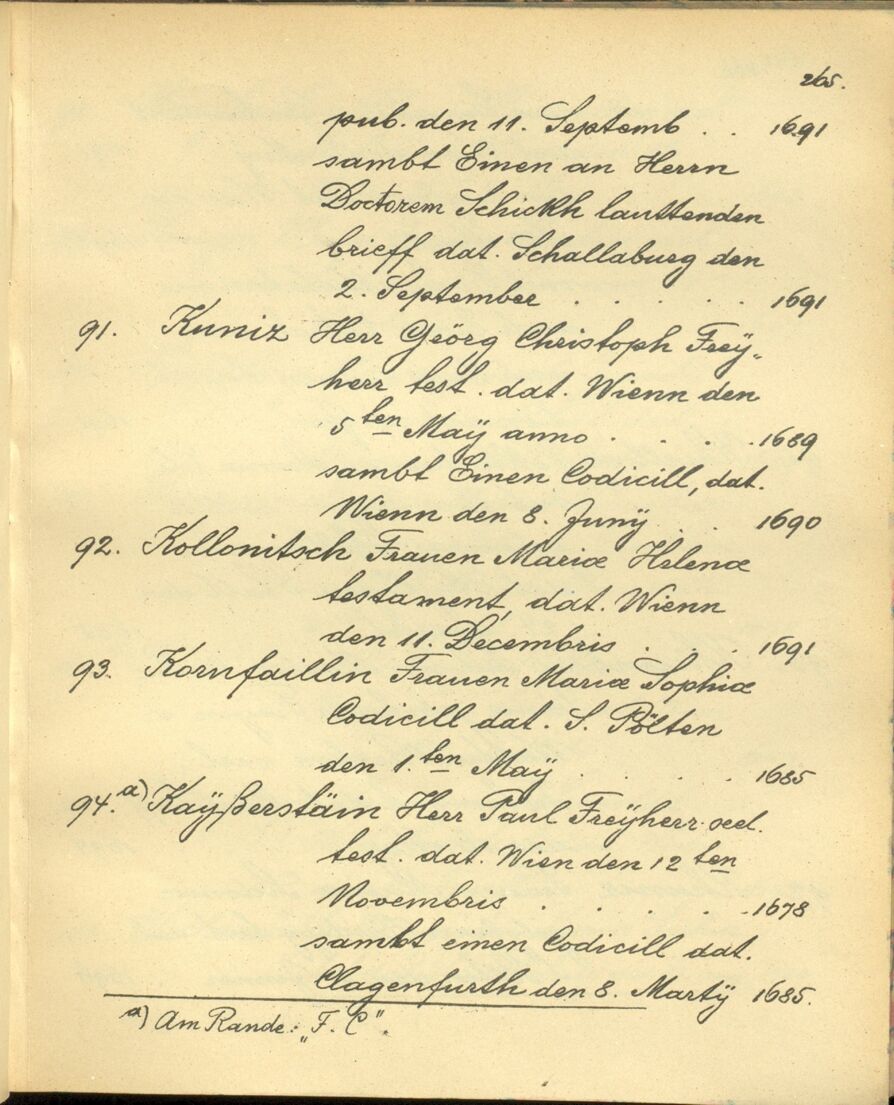 265.
pub. den 11. Septemb . . 1691
sambt Einen an Herrn
Doctorem Schickh lauttenden
brieff dat. Schallaburg den
2. September . . . . . 1691
91. Kuniz Herr Geörg Christoph Freÿ-
herr test. dat. Wienn den
5ten Maÿ anno . . . . 1689
sambt Einen Codicill, dat.
Wienn den 8. Junÿ . . 1690
92. Kollonitsch Frauen Mariæ Helenæ
testament, dat. Wienn
den 11. Decembris . . . 1691
93. Kornfaillin Frauen Mariæ Sophiæ
Codicill dat. S. Pölten
den 1.ten Maÿ . . . . . 1685
94.a) Kaÿßerstäin Herr Paul Freÿherr seel.
test. dat. Wien den 12ten
Novembris . . . . . 1678
sambt einen Codicill dat.
Clagenfurth den 8. Martÿ 1685.
a) Am Rande: „F. C“.